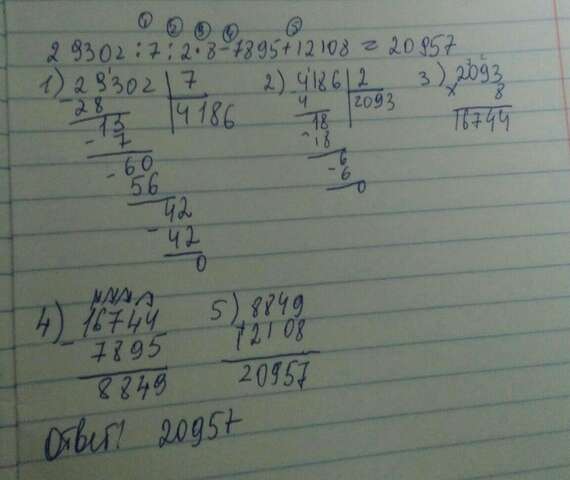 ① ② ③ ④ ⑤
29302:7:2·8-7895+12108=20957
1) 29302 | 7 2) 4186 | 2 3) 2093
- 28 4186 4 2093 × 8
13 18 16744
- 7 - 18
- 60 6
56 - 6
42 0
- 42
0
4) 16744 5) 8849
- 7895 12108
8849 20957
Ответ! 20957